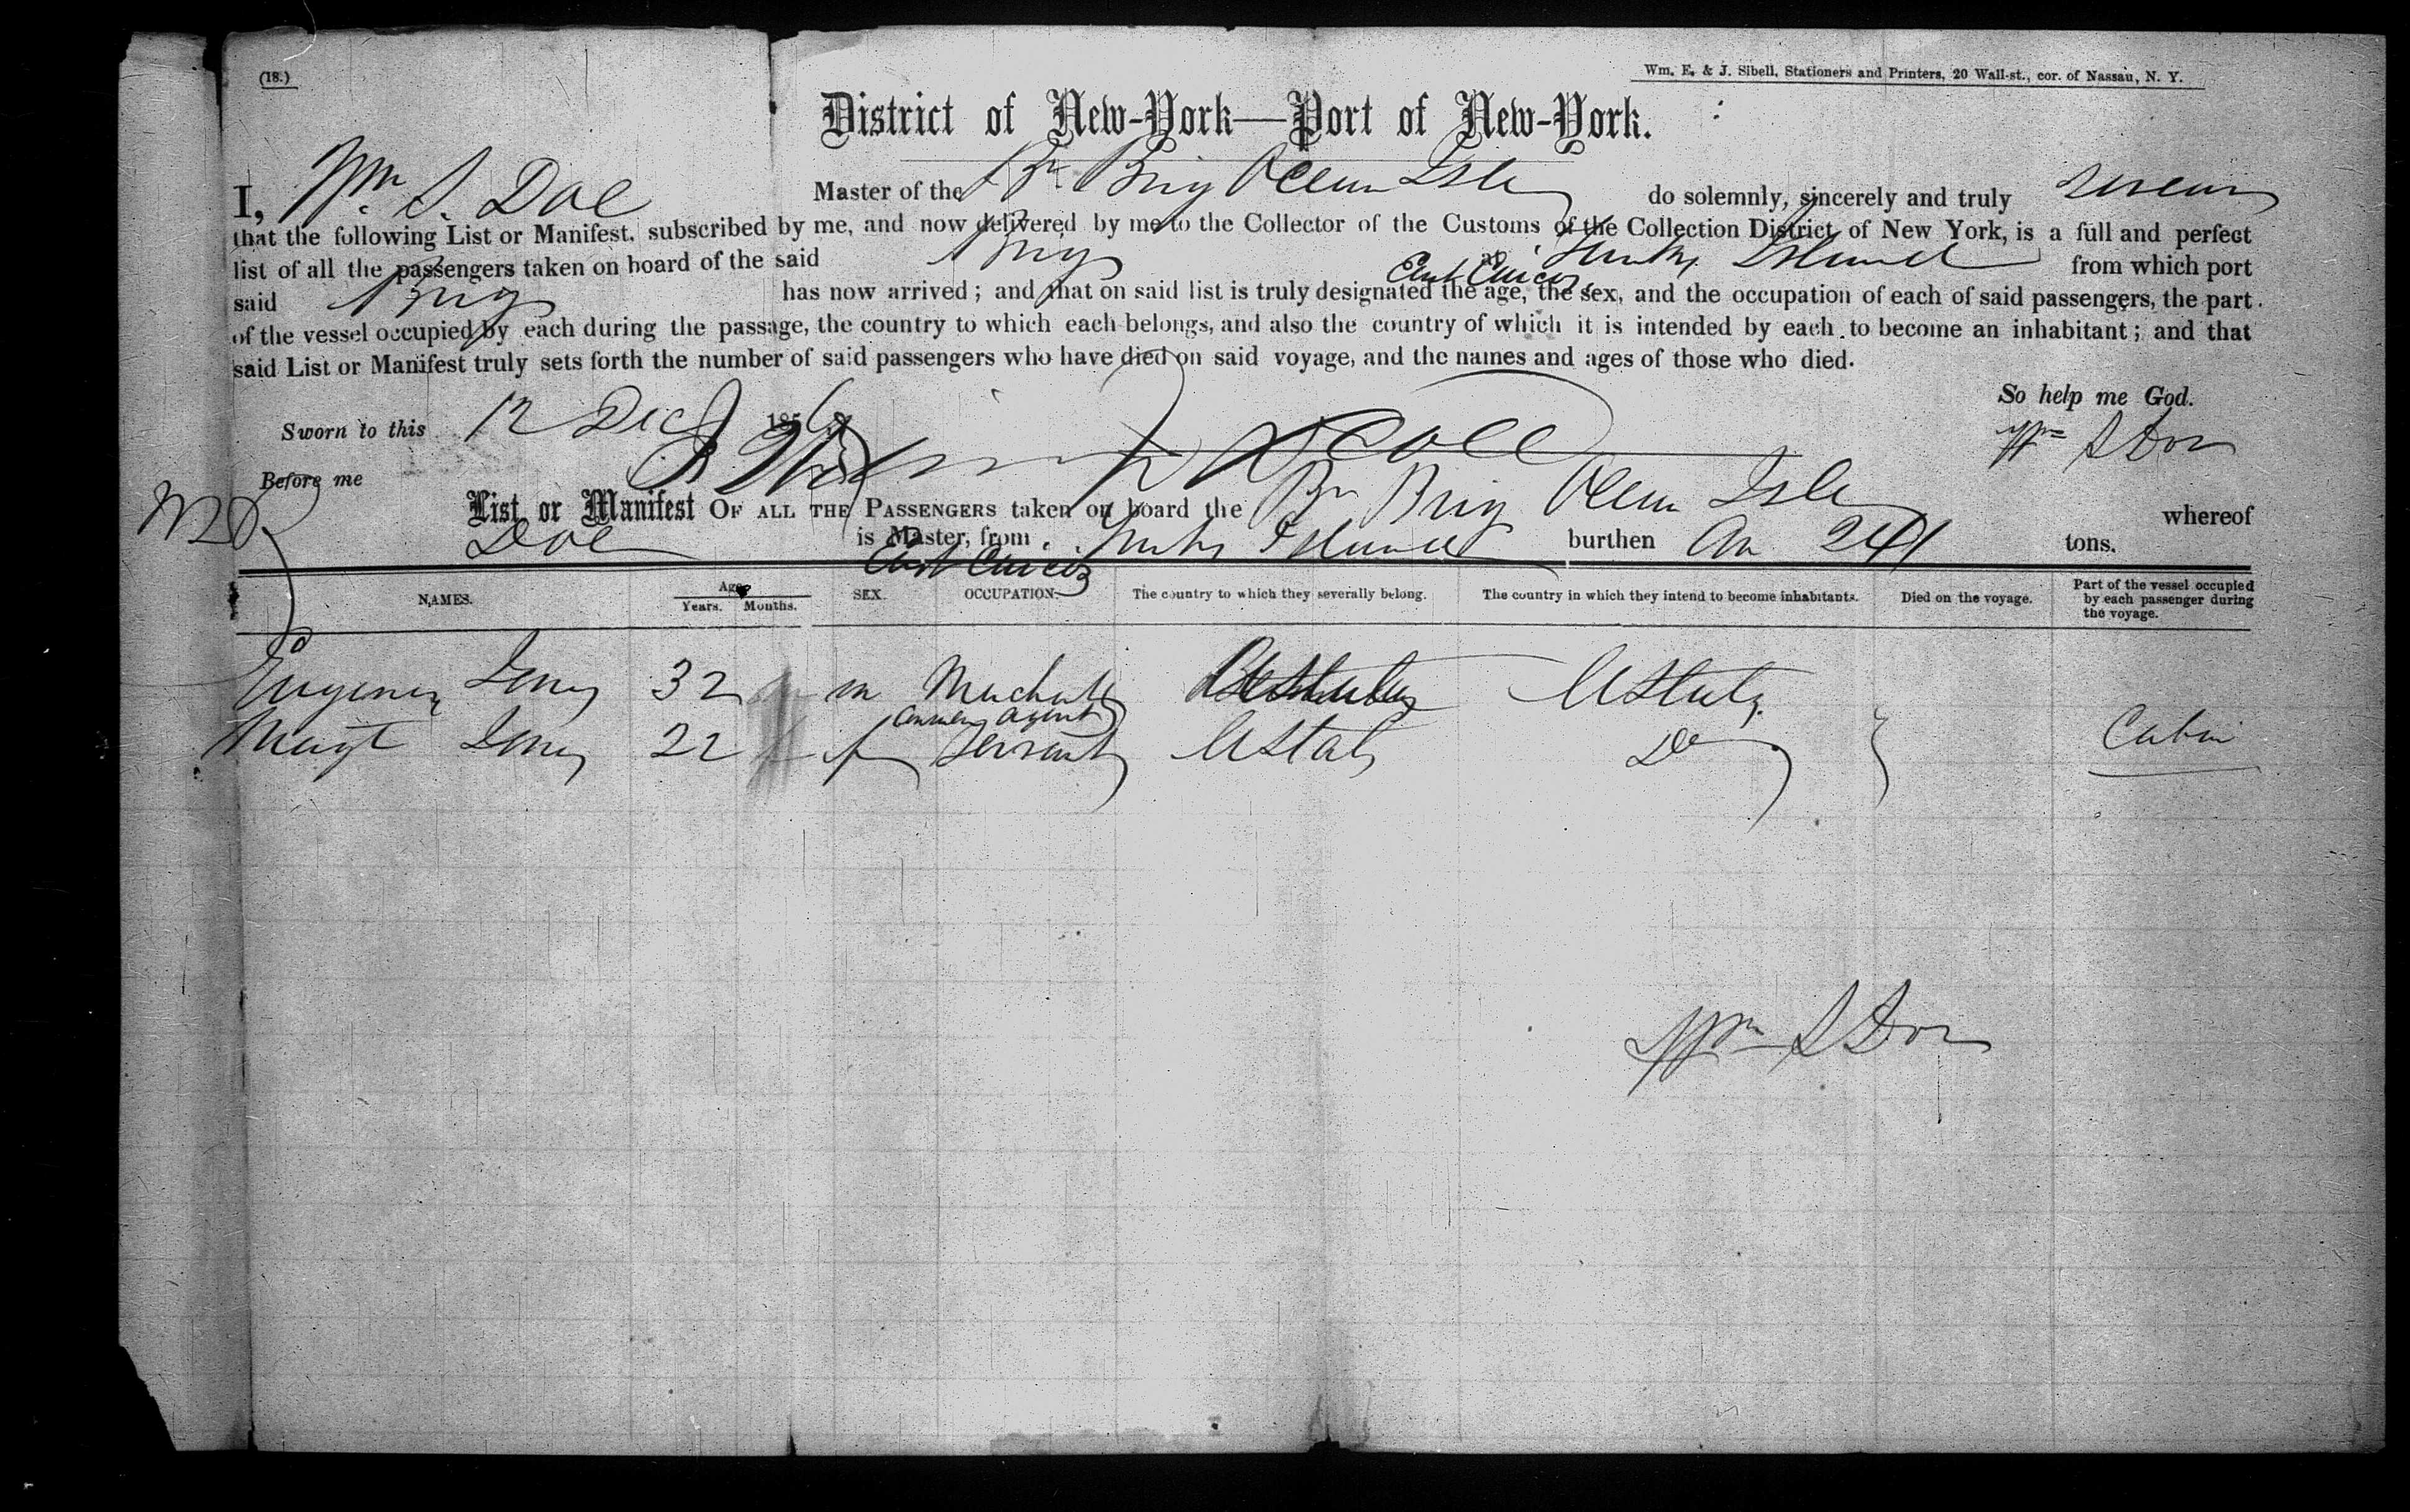 (18.)
Wm. E. & J. Sibell, Stationers and Printers, 20 Wall-st., cor. of Nassau, N. Y.
District of New-York—Port of New-York.
I, Wm. S. Doe Master of the Br Brig Ocean Isle do solemnly, sincerely and truly swear
that the following List or Manifest, subscribed by me, and now delivered by me to the Collector of the Customs of the Collection District of New York, is a full and perfect
list of all the passengers taken on board of the said Brig at Turks Island from which port
East Caicos
said Brig has now arrived; and that on said list is truly designated the age, the sex, and the occupation of each of said passengers, the part
of the vessel occupied by each during the passage, the country to which each belongs, and also the country of which it is intended by each to become an inhabitant; and that
said List or Manifest truly sets forth the number of said passengers who have died on said voyage, and the names and ages of those who died.
So help me God.
Sworn to this 12 Dec 186
Wm S Doe
Before me
List or Manifest OF ALL THE PASSENGERS taken on board the Br Brig Ocean Isle whereof
Doe is Master, from Turks Island burthen 241 tons.
East Caicos
NAMES. Age Years. Months. SEX. OCCUPATION. The country to which they severally belong. The country in which they intend to become inhabitants. Died on the voyage. Part of the vessel occupied by each passenger during the voyage.
32 m UStates
agent
22 f Servant UStates Do Cabin
Wm S Doe